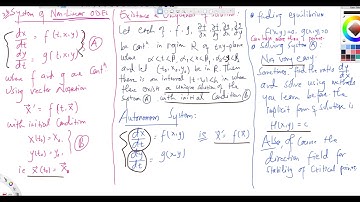 System of Non-Linear ODEs
dx/dt = f(t,x,y)
dy/dt = g(t,x,y)
A
where f and g are Contˢ
Using Vector Notation
x⃗' = f(t,x⃗)
with initial Condition
x(t₀) = x₀
y(t₀) = y₀
B
ie x⃗(t₀) = x⃗₀
Existence & Uniqueness of Solution:
Let each of f, g,
be Contˢ in region R of txy-plane
where α<t<β, α₁<x<β₁, α₂<y<β₂
and (t₀,x₀,y₀) be in R. Then
there is an interval |t-t₀|<h when
there exists a unique solution of the
system A with initial Condition B
Autonomous System:
dx/dt = f(x,y)
ie x⃗' = f(x⃗)
dy/dt = g(x,y)
* finding equilibrium
f(x,y)=0, g(x,y)=0
Solving System A:
Not very easy:
Sometimes, find the ratio dy/dx
and solve using methods
you learn before. The
implicit form of solution is
H(x,y) = c
Also, of course the
direction field for
stability of critical points